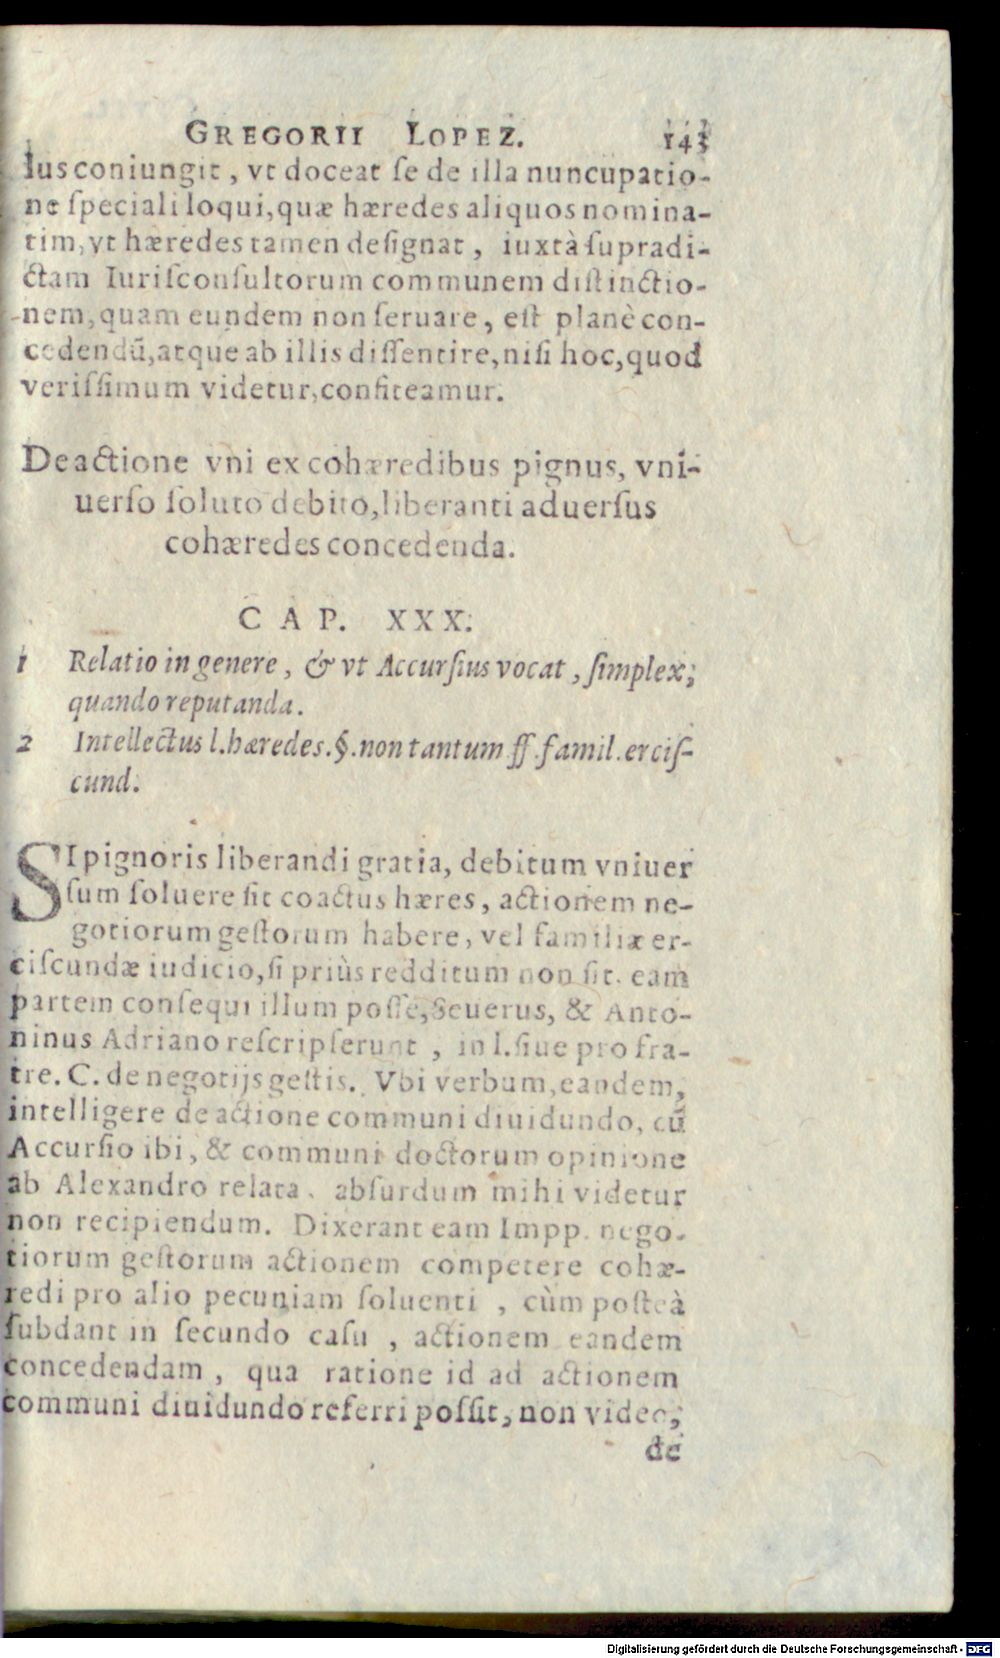 GREGORII LOPEZ. 143
Ius coniungit, vt doceat ſe de illa nuncupatio-
ne ſpeciali loqui, quæ hæredes aliquos nomina-
tim, vt hæredes tamen deſignat, iuxtà ſupradi-
ctam Iuriſconſultorum communem diſtinctio-
nem, quam eundem non ſeruare, eſt planè con-
cedendũ, atque ab illis diſſentire, niſi hoc, quod
veriſſimum videtur, confiteamur.
De actione vni ex cohæredibus pignus, vni-
uerſo ſoluto debito, liberanti aduerſus
cohæredes concedenda.
CAP. XXX.
1 Relatio in genere, & vt Accurſius vocat, ſimplex;
quando reputanda.
2 Intellectus l. hæredes. §. non tantum ff. famil. erciſ-
cund.
SI pignoris liberandi gratia, debitum vniuer
ſum ſoluere ſit coactus hæres, actionem ne-
gotiorum geſtorum habere, vel familiæ er-
ciſcundæ iudicio, ſi priùs redditum non ſit. eam
partem conſequi illum poſſe, Seuerus, & Anto-
ninus Adriano reſcripſerunt, in l. ſiue pro fra-
tre. C. de negotijs geſtis. Vbi verbum, eandem,
intelligere de actione communi diuidundo, cũ
Accurſio ibi, & communi doctorum opinione
ab Alexandro relata. abſurdum mihi videtur
non recipiendum. Dixerant eam Impp. nego-
tiorum geſtorum actionem competere cohæ-
redi pro alio pecuniam ſoluenti, cùm poſteà
ſubdant in ſecundo caſu, actionem eandem
concedendam, qua ratione id ad actionem
communi diuidundo referri poſſit, non video,
de
Digitalisierung gefördert durch die Deutsche Forschungsgemeinschaft - DFG